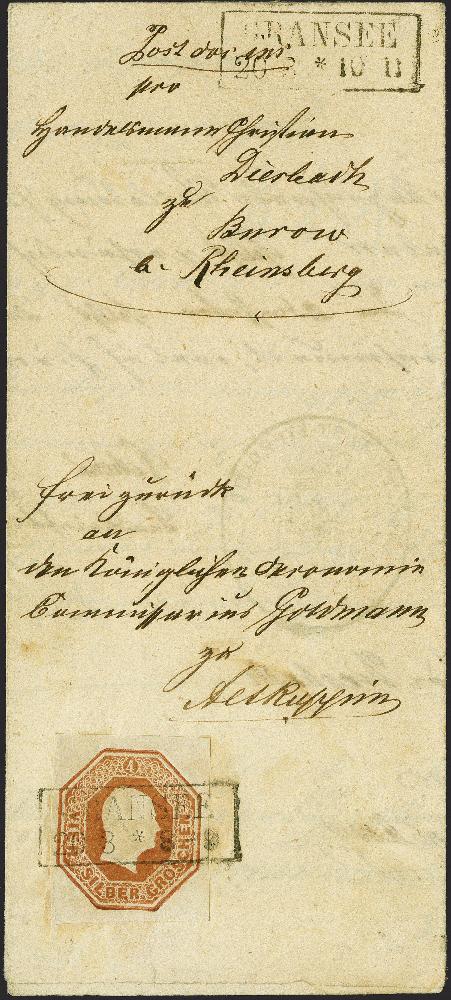 GRANSEE
26 3 * 10 11
Post doc. ins.
pro
Handelsmann Christian
Dierbach
zu
Burow
b. Rheinsberg
frei zurück
an
den Königlichen Oeconomie
Commissarius Goldmann
zu
Altruppin
4
VIER SILBER GROSCHEN
GRANSEE
3 * 8